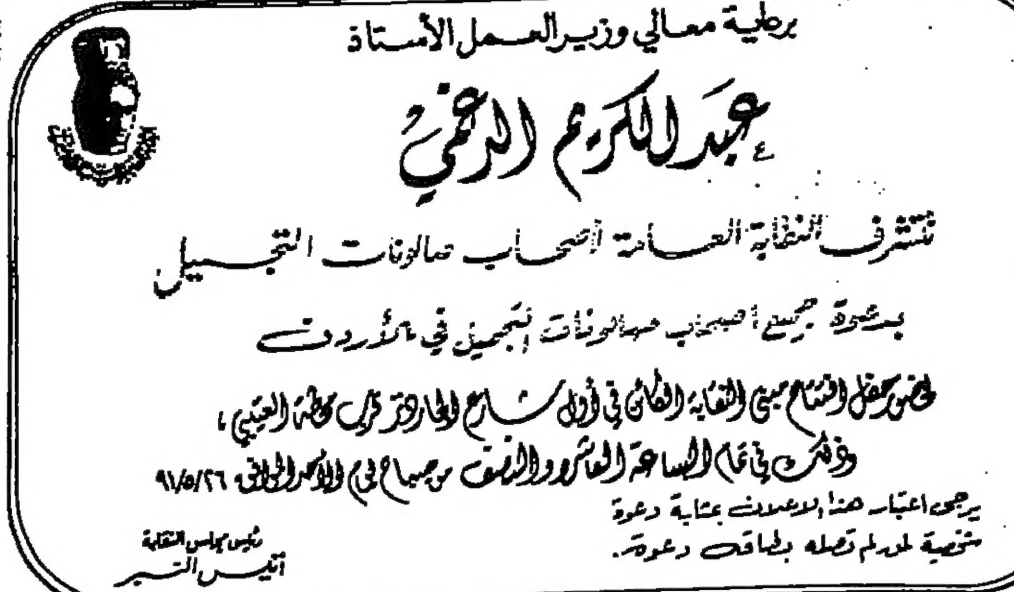 برعاية معالي وزير العمل الأستاذ
عبد الكريم الدغمي
تتشرف النقابة العامة لأصحاب صالونات التجميل
بدعوة جميع أصحاب صالونات التجميل في الأردن
لحضور حفل افتتاح مبنى النقابة الكائن في أول شارع الجاردنز قرب محطة العتيبي ،
وذلك في تمام الساعة العاشرة والنصف من صباح يوم الأحد الموافق ٩١/٥/٢٦
يرجى اعتبار هذا الاعلان بمثابة دعوة
شخصية لمن لم تصله بطاقة دعوة.
رئيس مجلس النقابة